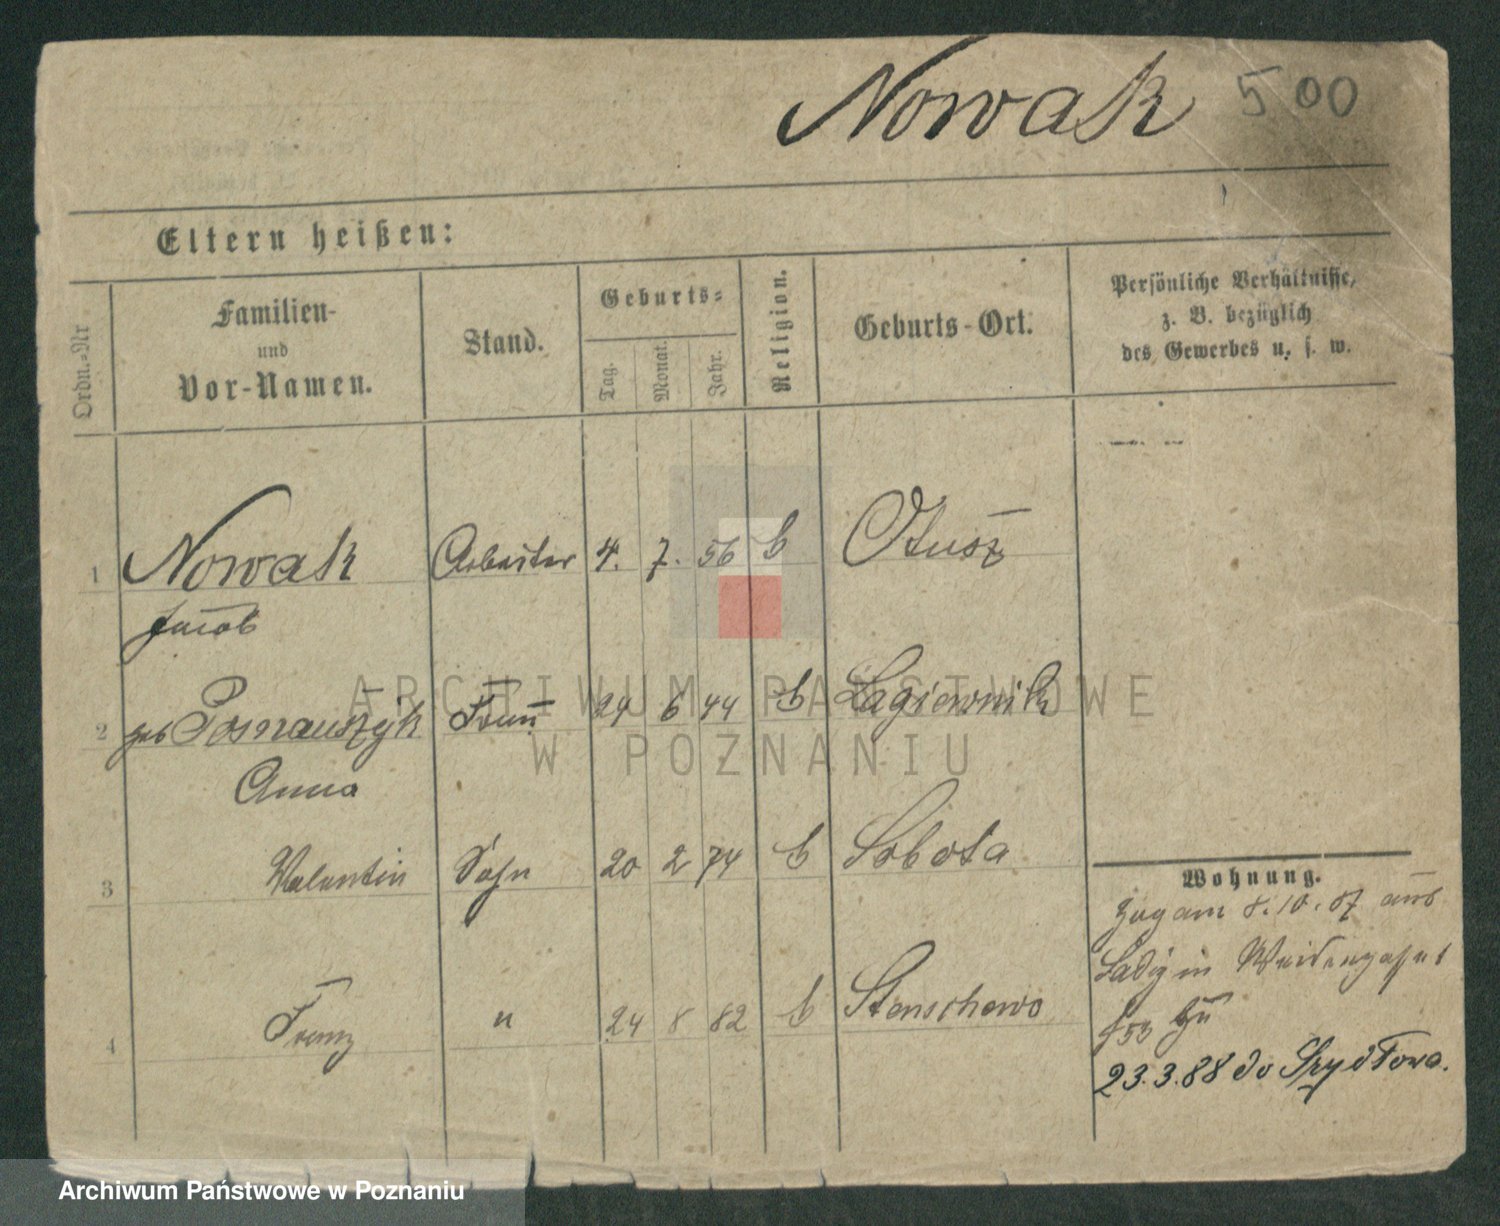 Nowak 500
Eltern heißen:
Ordn.=Nr
Familien-
und
Vor-Namen.
Stand.
Geburts=
Tag.
Monat.
Jahr.
Religion.
Geburts-Ort.
Persönliche Verhältnisse,
z. B. bezüglich
des Gewerbes u. s. w.
1 Nowak Arbeiter 4. 7. 56 b Otusz
Jacob
2 geb Posnanszyk Frau 24 6 44 b Lagiewnik
Anna
3 Valentin Sohn 20 2 74 b Sobota
4 Franz " 24 8 82 b Stenschewo
Wohnung.
Zugam 8.10.87 aus
in Weidengasse
23.3.88 do Szydłowo.
ARCHIWUM PAŃSTWOWE
W POZNANIU
Archiwum Państwowe w Poznaniu